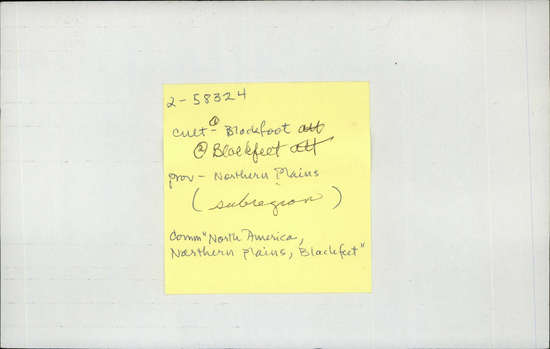 2-58324
cult - ① Blackfoot att
② Blackfeet att
prov - Northern Plains
(subregion)
Comm "North America,
Northern Plains, Blackfeet"